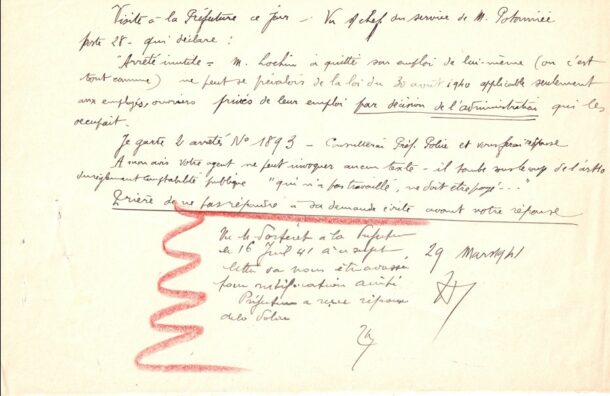 Visite à la Préfecture ce jour – Vu s/chef du service de M.
poste 28 – qui déclare :
"Arrêté inutile = M. Lochin a quitté son emploi de lui-même (ou c'est
tout comme) ne peut se prévaloir de la loi du 30 août 1940 applicable seulement
aux employés, ouvriers privés de leur emploi par décision de l'administration qui les
occupait.
Je garde 2 arrêtés No 1893 – Consulterai Préf. Police et vous ferai réponse
A mon avis votre agent ne peut invoquer aucun texte – il tombe sous le coup de l'art
du règlement comptabilité publique "qui n'a pas travaillé, ne doit être payé..."
Prière de ne pas répondre à sa demande écrite avant votre réponse
Vu M. à la Préfecture
le 16 Juil 41 accepté
lettre va nous être
pour notification arrêté
29 Mars 1941
Préfecture a reçu réponse
de la Police